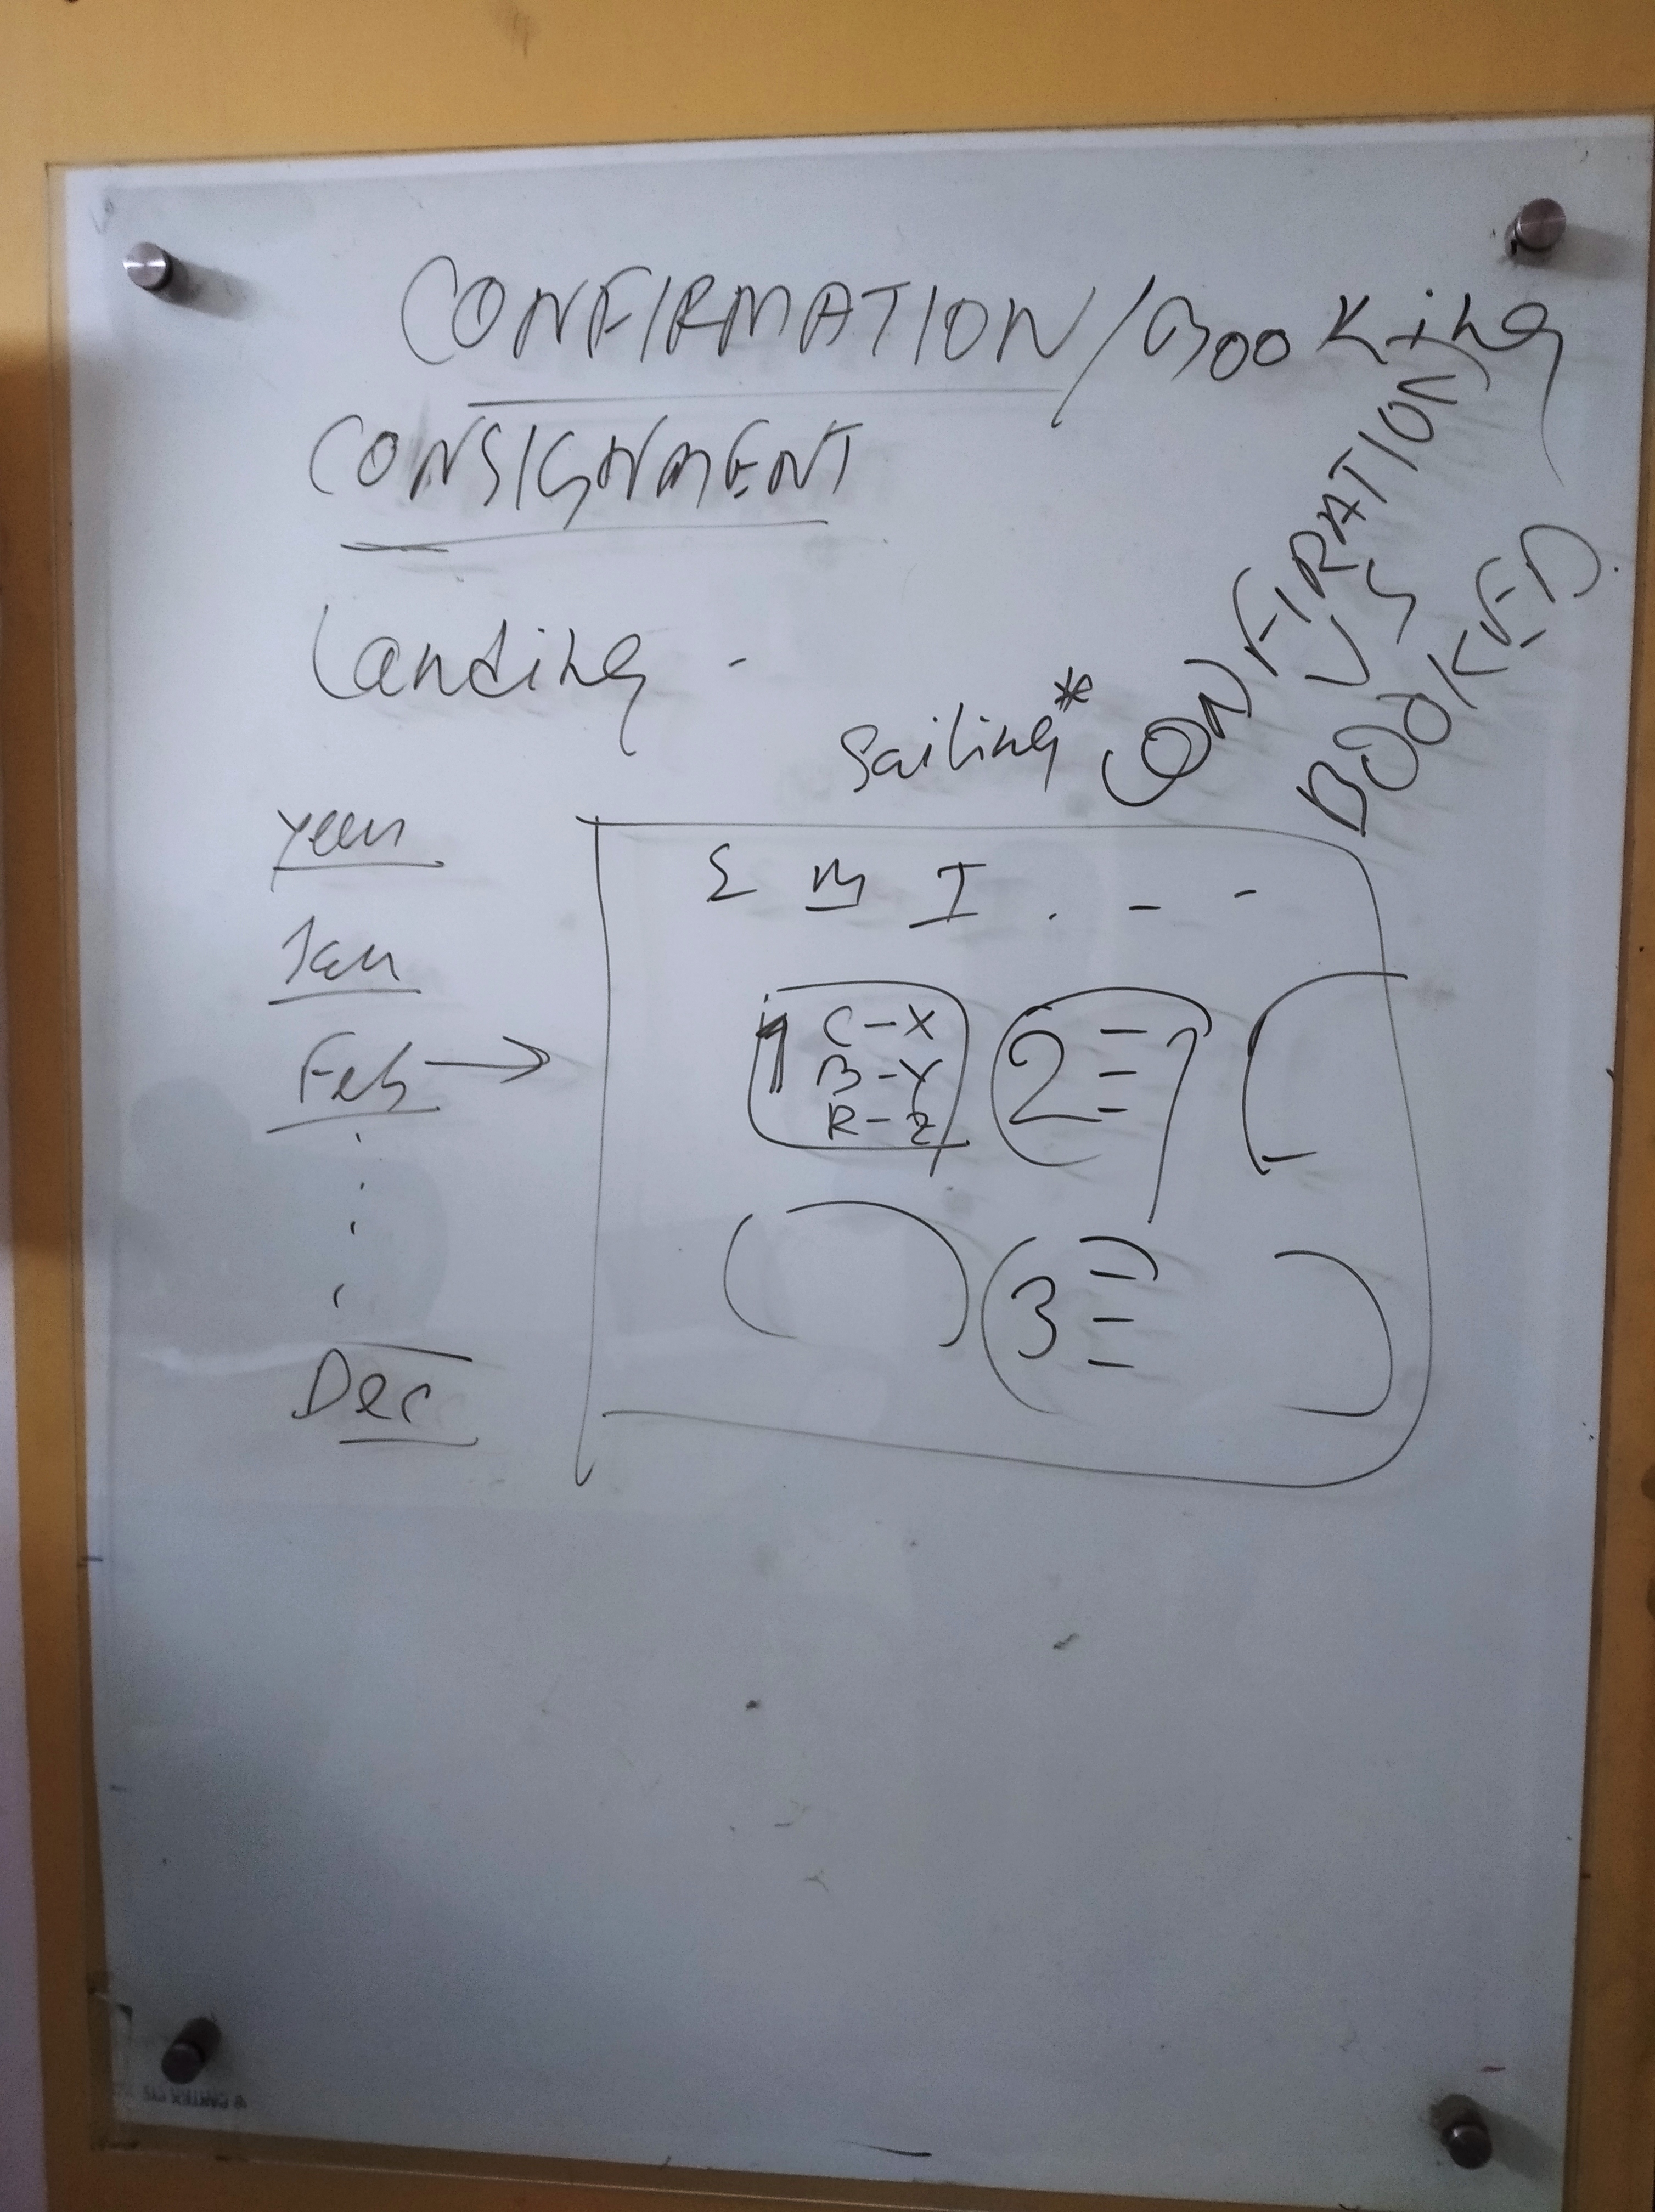 CONFIRMATION/Booking
CONSIGNMENT
Landing -
Sailing*
CONFIRATION
VS
BOOKED
year
Jan
Feb →
Dec
S M T . - -
1 C-X
B-Y
R-Z
2
3